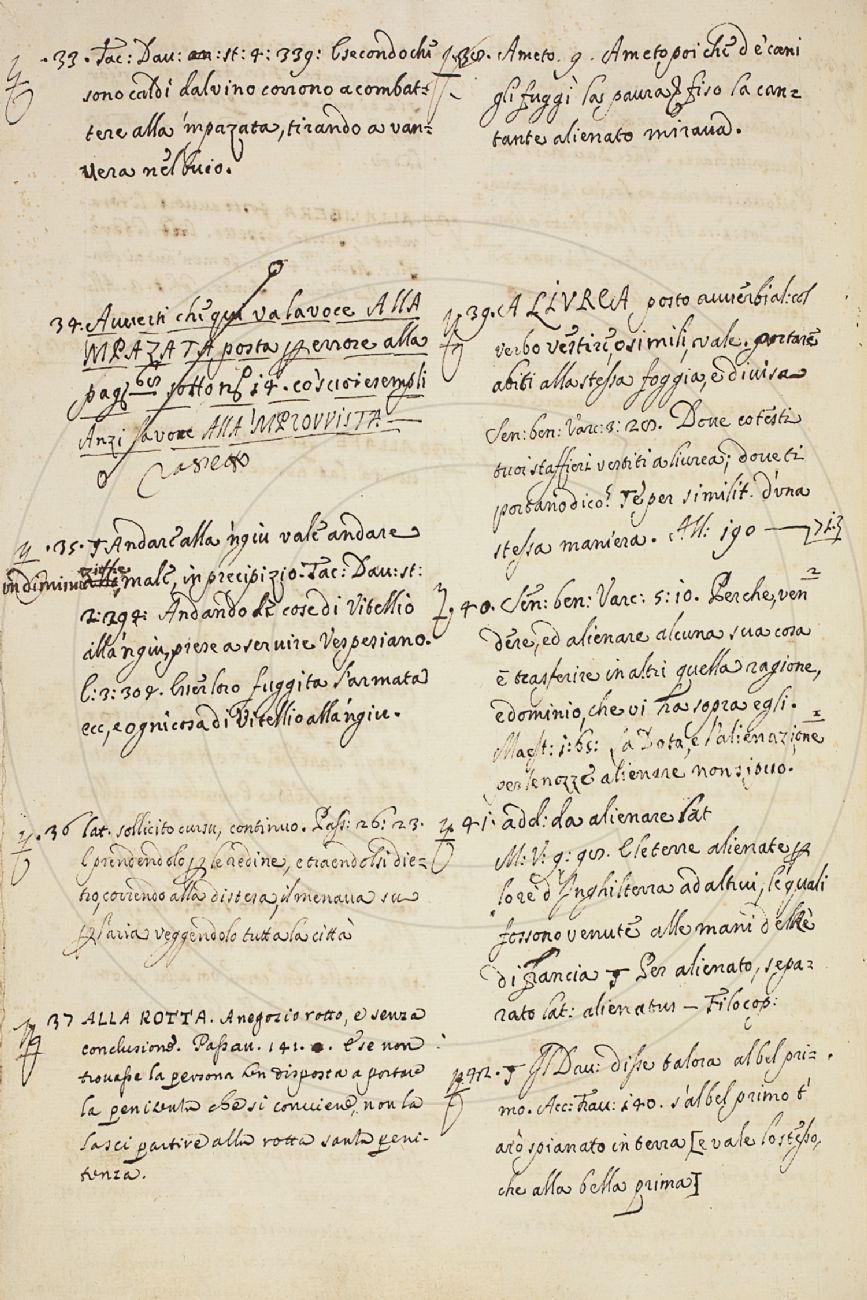 .33. Tac: Dau: st: 4: 339: E secondo chè
sono caldi dal vino corrono a combat=
tere alla 'mpazata, tirando a van=
vera nel buio.
34. Averti che qui va la voce ALLA
MPAZATA posta per errore alla
pag: sotto nº 14. co' suoi esempli
Anzi la voce ALLA 'MPROVVISTA
Cassato
.35. Andare alla 'ngiu vale andare
in diminuzione, male, in precipizio. Tac: Dav: st:
2: 294: Andando le cose di Vitellio
alla 'ngiu, prese a servire Vespesiano.
E: 3: 304. Esser loro fuggita l'armata
ecc, e ogni cosa di Vitellio alla 'ngiu.
.36 lat. sollicito cursu, continuo. Pass: 26: 23.
E prendendolo per le redine, e traendolsi die=
tro, correndo alla distesa, il menava su
per l'aria veggendolo tutta la città
37 ALLA ROTTA. A negozio rotto, e senza
conclusione. Passav. 141. E se non
trovasse la persona ben disposta a portare
la penitenza che si conviene, non la
lasci partire alla rotta sanza peni-
tenza.
38. Ameto. 9. Ameto poi che d è cani
gli fuggì la paura fiso la can=
tante alienato mirava.
39. A LIVREA posto avverbial: col
verbo vestire, o simili, vale. portare
abiti alla stessa foggia, e divisa
Sen: ben: Varc: 3: 28. Dove cotesti
tuoi staffieri vestiti a livrea; dove ti
portano dico? Te per similit. d'una
stessa maniera. All: 190 — 713
.40. Sen: ben: Varc: 5: 10. Perche, ven
dere, ed alienare alcuna sua cosa
è trasferire in altri quella ragione,
e dominio, che vi ha sopra egli.
Maest: 1: 65: La Dota, e l'alienazione
per le nozze alienare non si può.
41. add: da alienare lat
M: V: 9: 98. E le terre alienate per
lo re d'Inghilterra ad altrui, le quali
fossono venute alle mani del Re
di Francia Per alienato, sepa=
rato lat: alienatus — Filocop:
42. Il Dav: disse talora al bel pri=
mo. Acc: Trav: 140. s'al bel primo t'
arò spianato in terra [e vale lo stesso,
che alla bella prima]